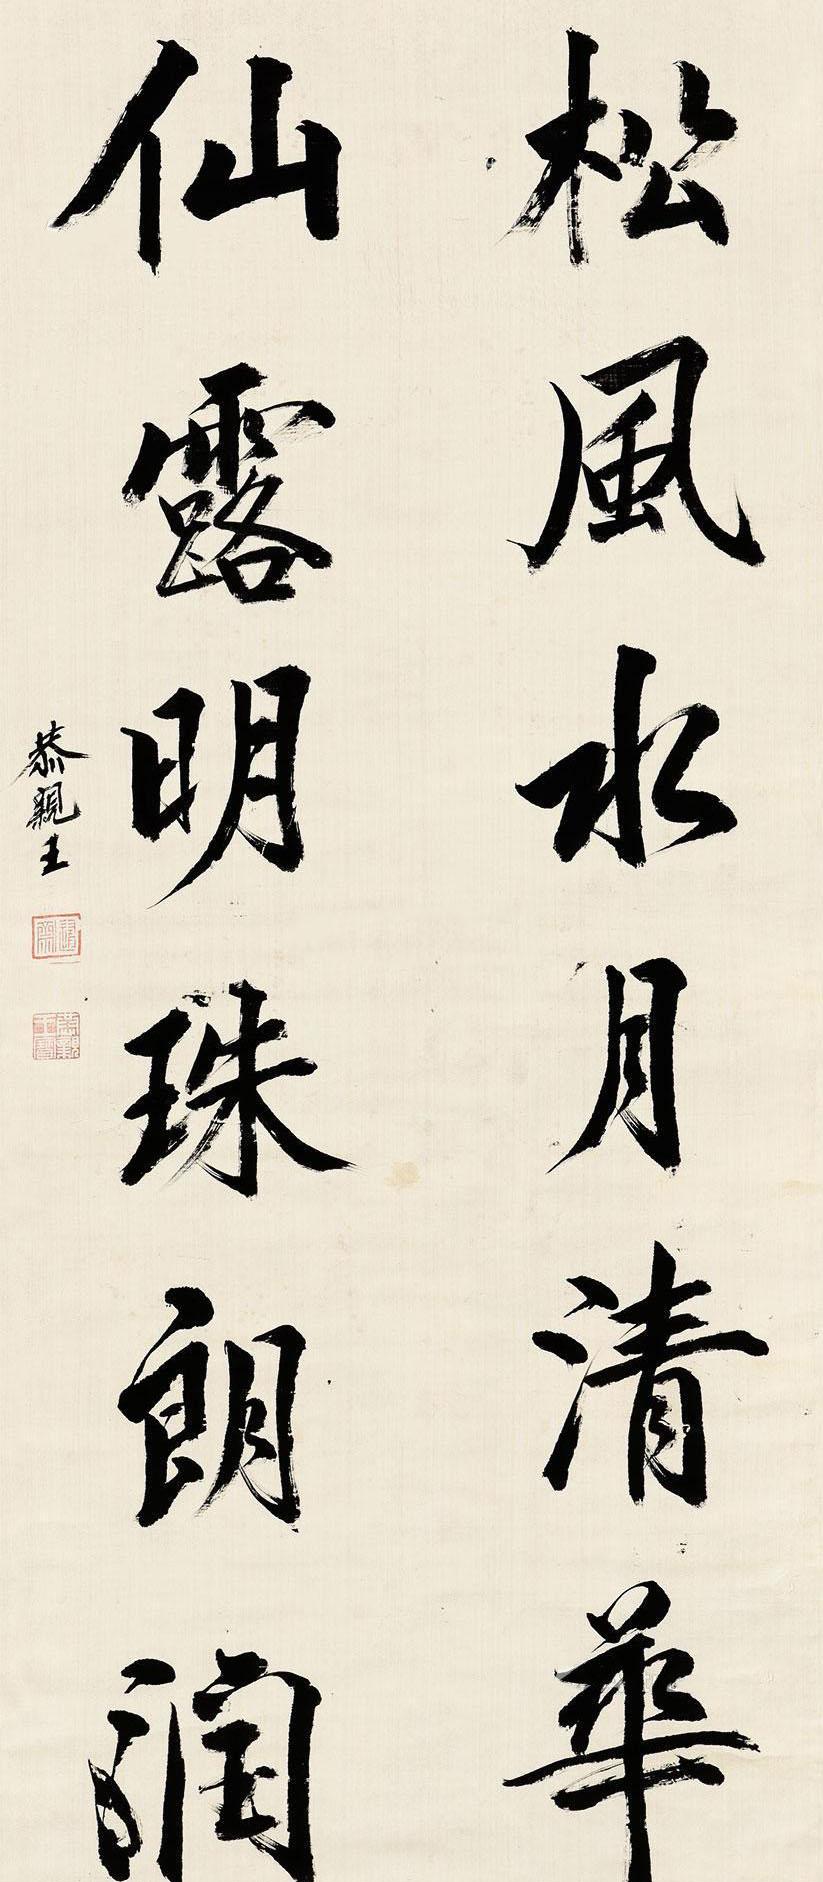 松風水月清華
仙露明珠朗潤
恭親王